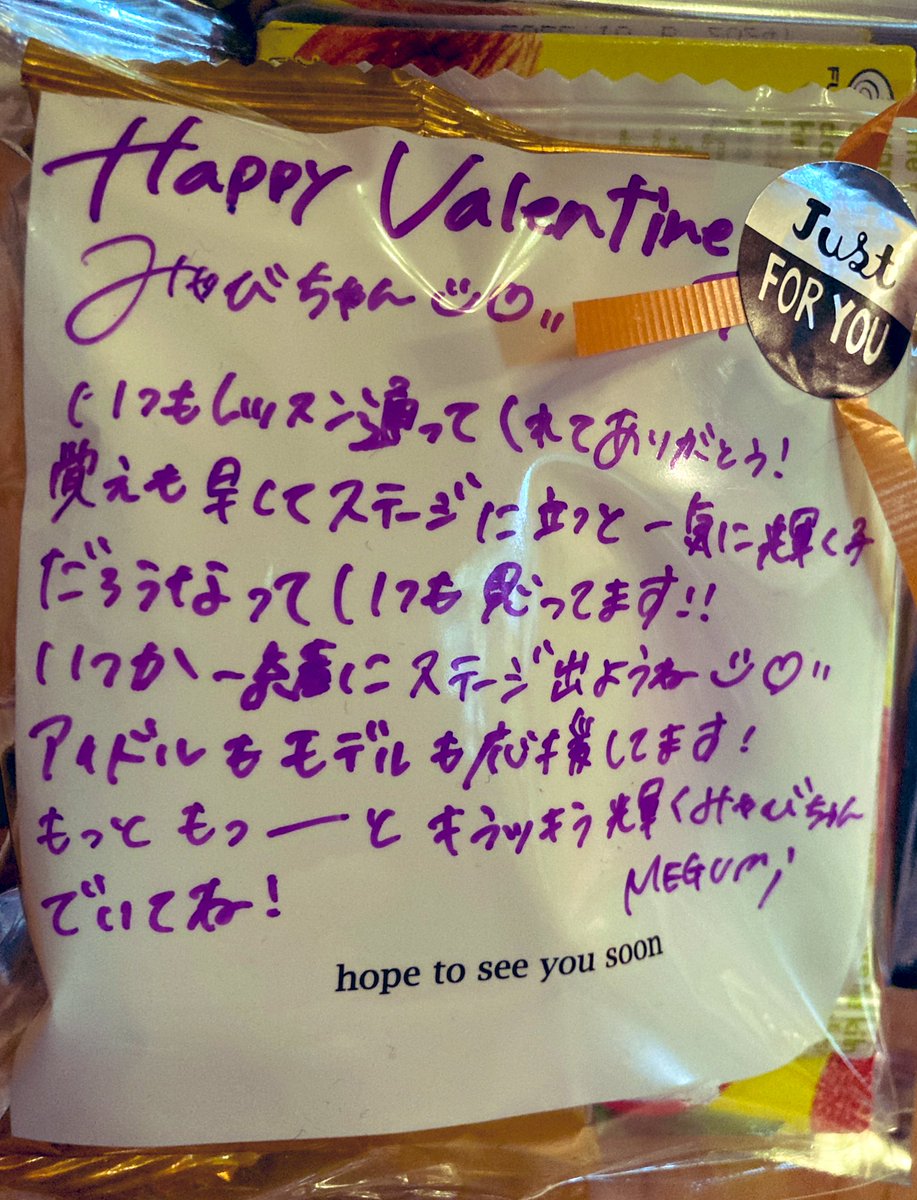 Happy Valentine
Just
FOR YOU
みやびちゃん
いつもレッスン通ってくれてありがとう!
覚えも早くてステージに立つと一気に輝く子
だろうなっていつも思ってます!!
いつか一緒にステージ出ようね
アイドルもモデルも応援してます!
もっともっーとキラッキラ輝くみやびちゃん
でいてね!
MEGUMi
hope to see you soon